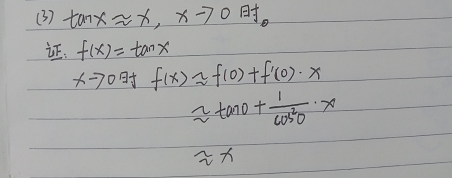 (3) tanx≈x, x→0时。
证: f(x)=tanx
x→0时 f(x)≈f(0)+f'(0)·x
≈tan0+\frac{1}{cos²0}·x
≈x